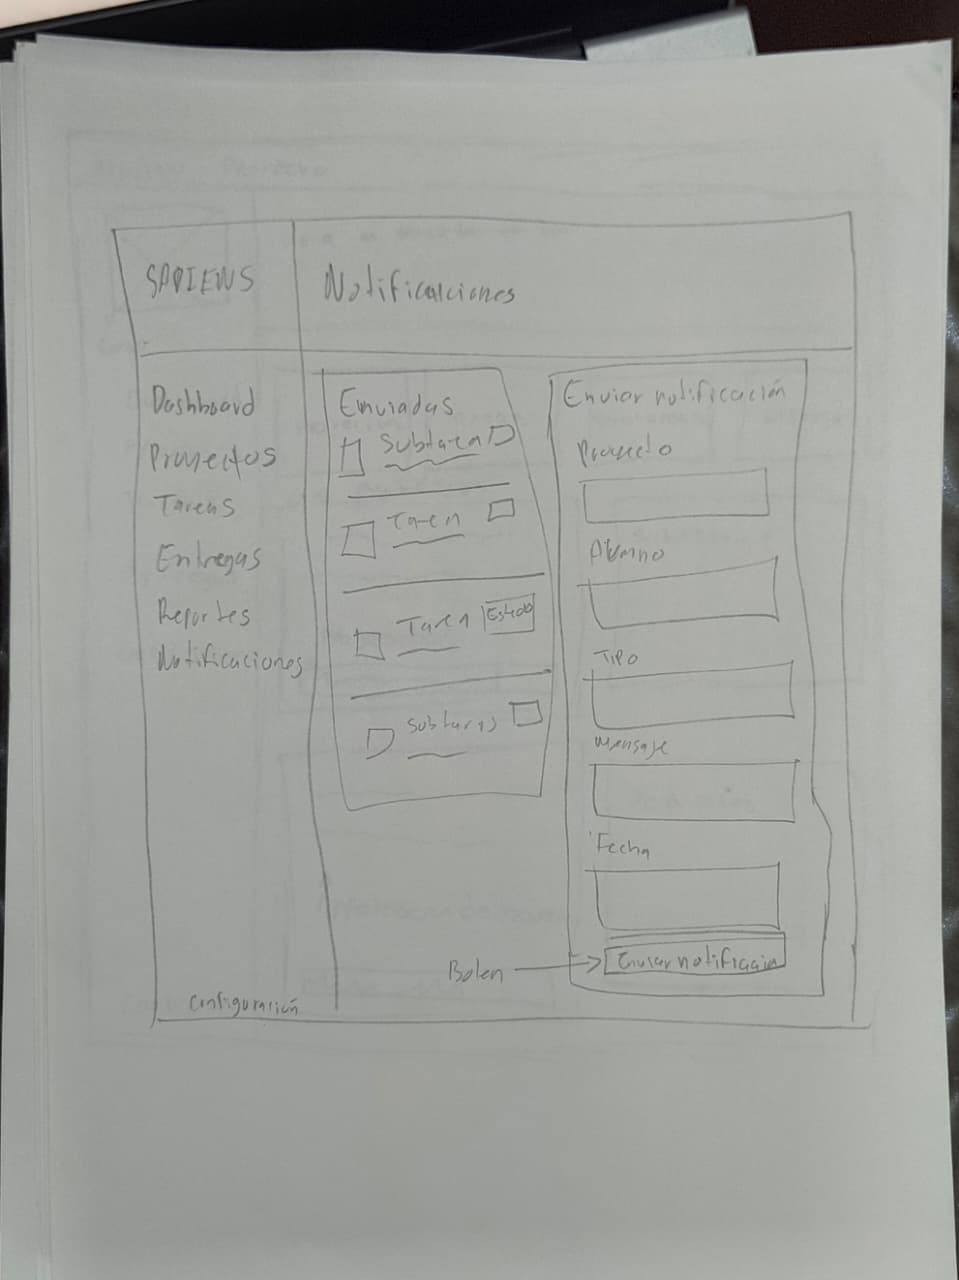 SAPIEWS
Notificaciones
Dashboard
Proyectos
Tareas
Entregas
Reportes
Notificaciones
Configuración
Enviadas
Subtarea
Tarea
Tarea
Estado
Subtareas
Enviar notificación
Proyecto
Alumno
Tipo
Mensaje
Fecha
Enviar notificación
Boten